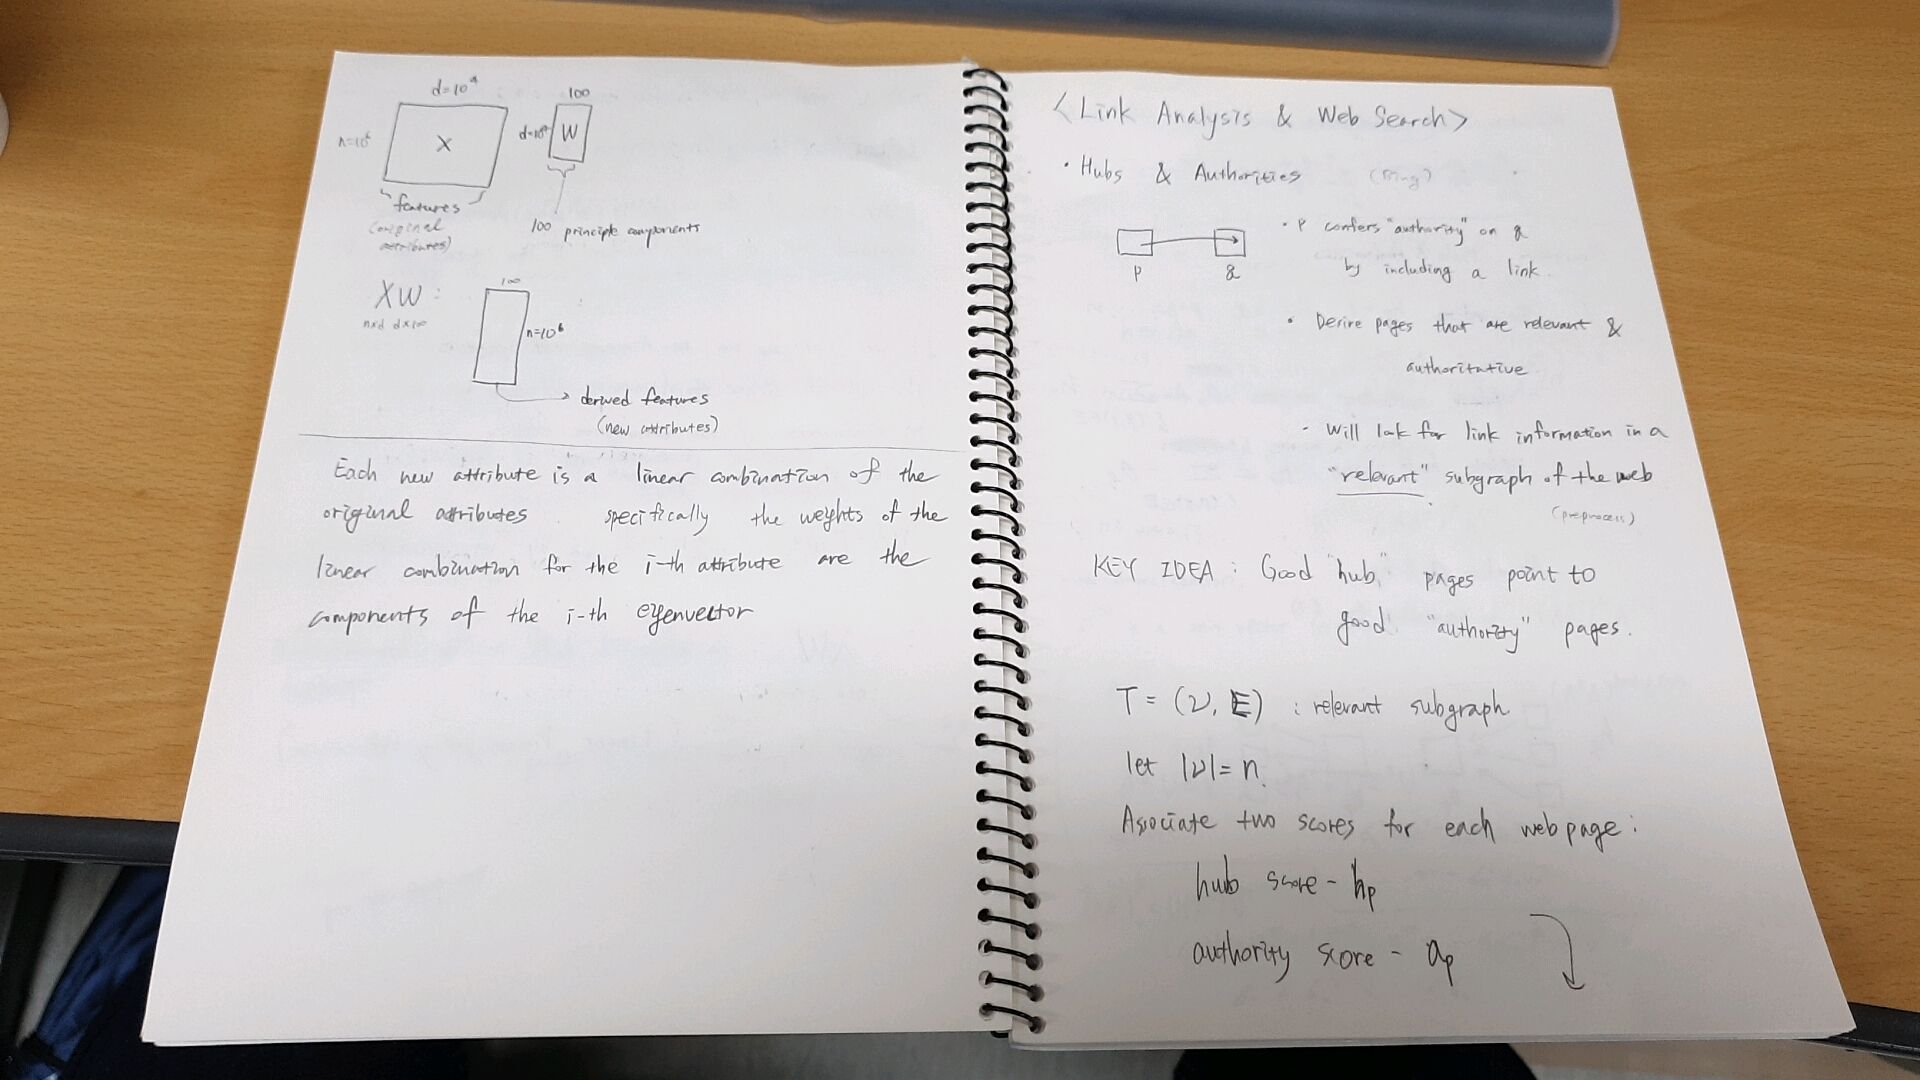 d=10⁴
100
n=10⁶
X
W
features
(original
attributes)
100 principle components
XW:
nxd dx100
100
n=10⁶
derived features
(new attributes)
Each new attribute is a linear combination of the
original attributes specifically the weights of the
linear combination for the i-th attribute are the
components of the i-th eigenvector
<Link Analysis & Web Search>
• Hubs & Authorities
• P confers "authority" on q
by including a link.
p
q
• Desire pages that are relevant &
authoritative
• Will look for link information in a
"relevant" subgraph of the web
(preprocess)
KEY IDEA : Good "hub" pages point to
good "authority" pages.
T = (V, E) : relevant subgraph
let |V|= n.
Associate two scores for each web page :
hub score - hp
authority score - ap